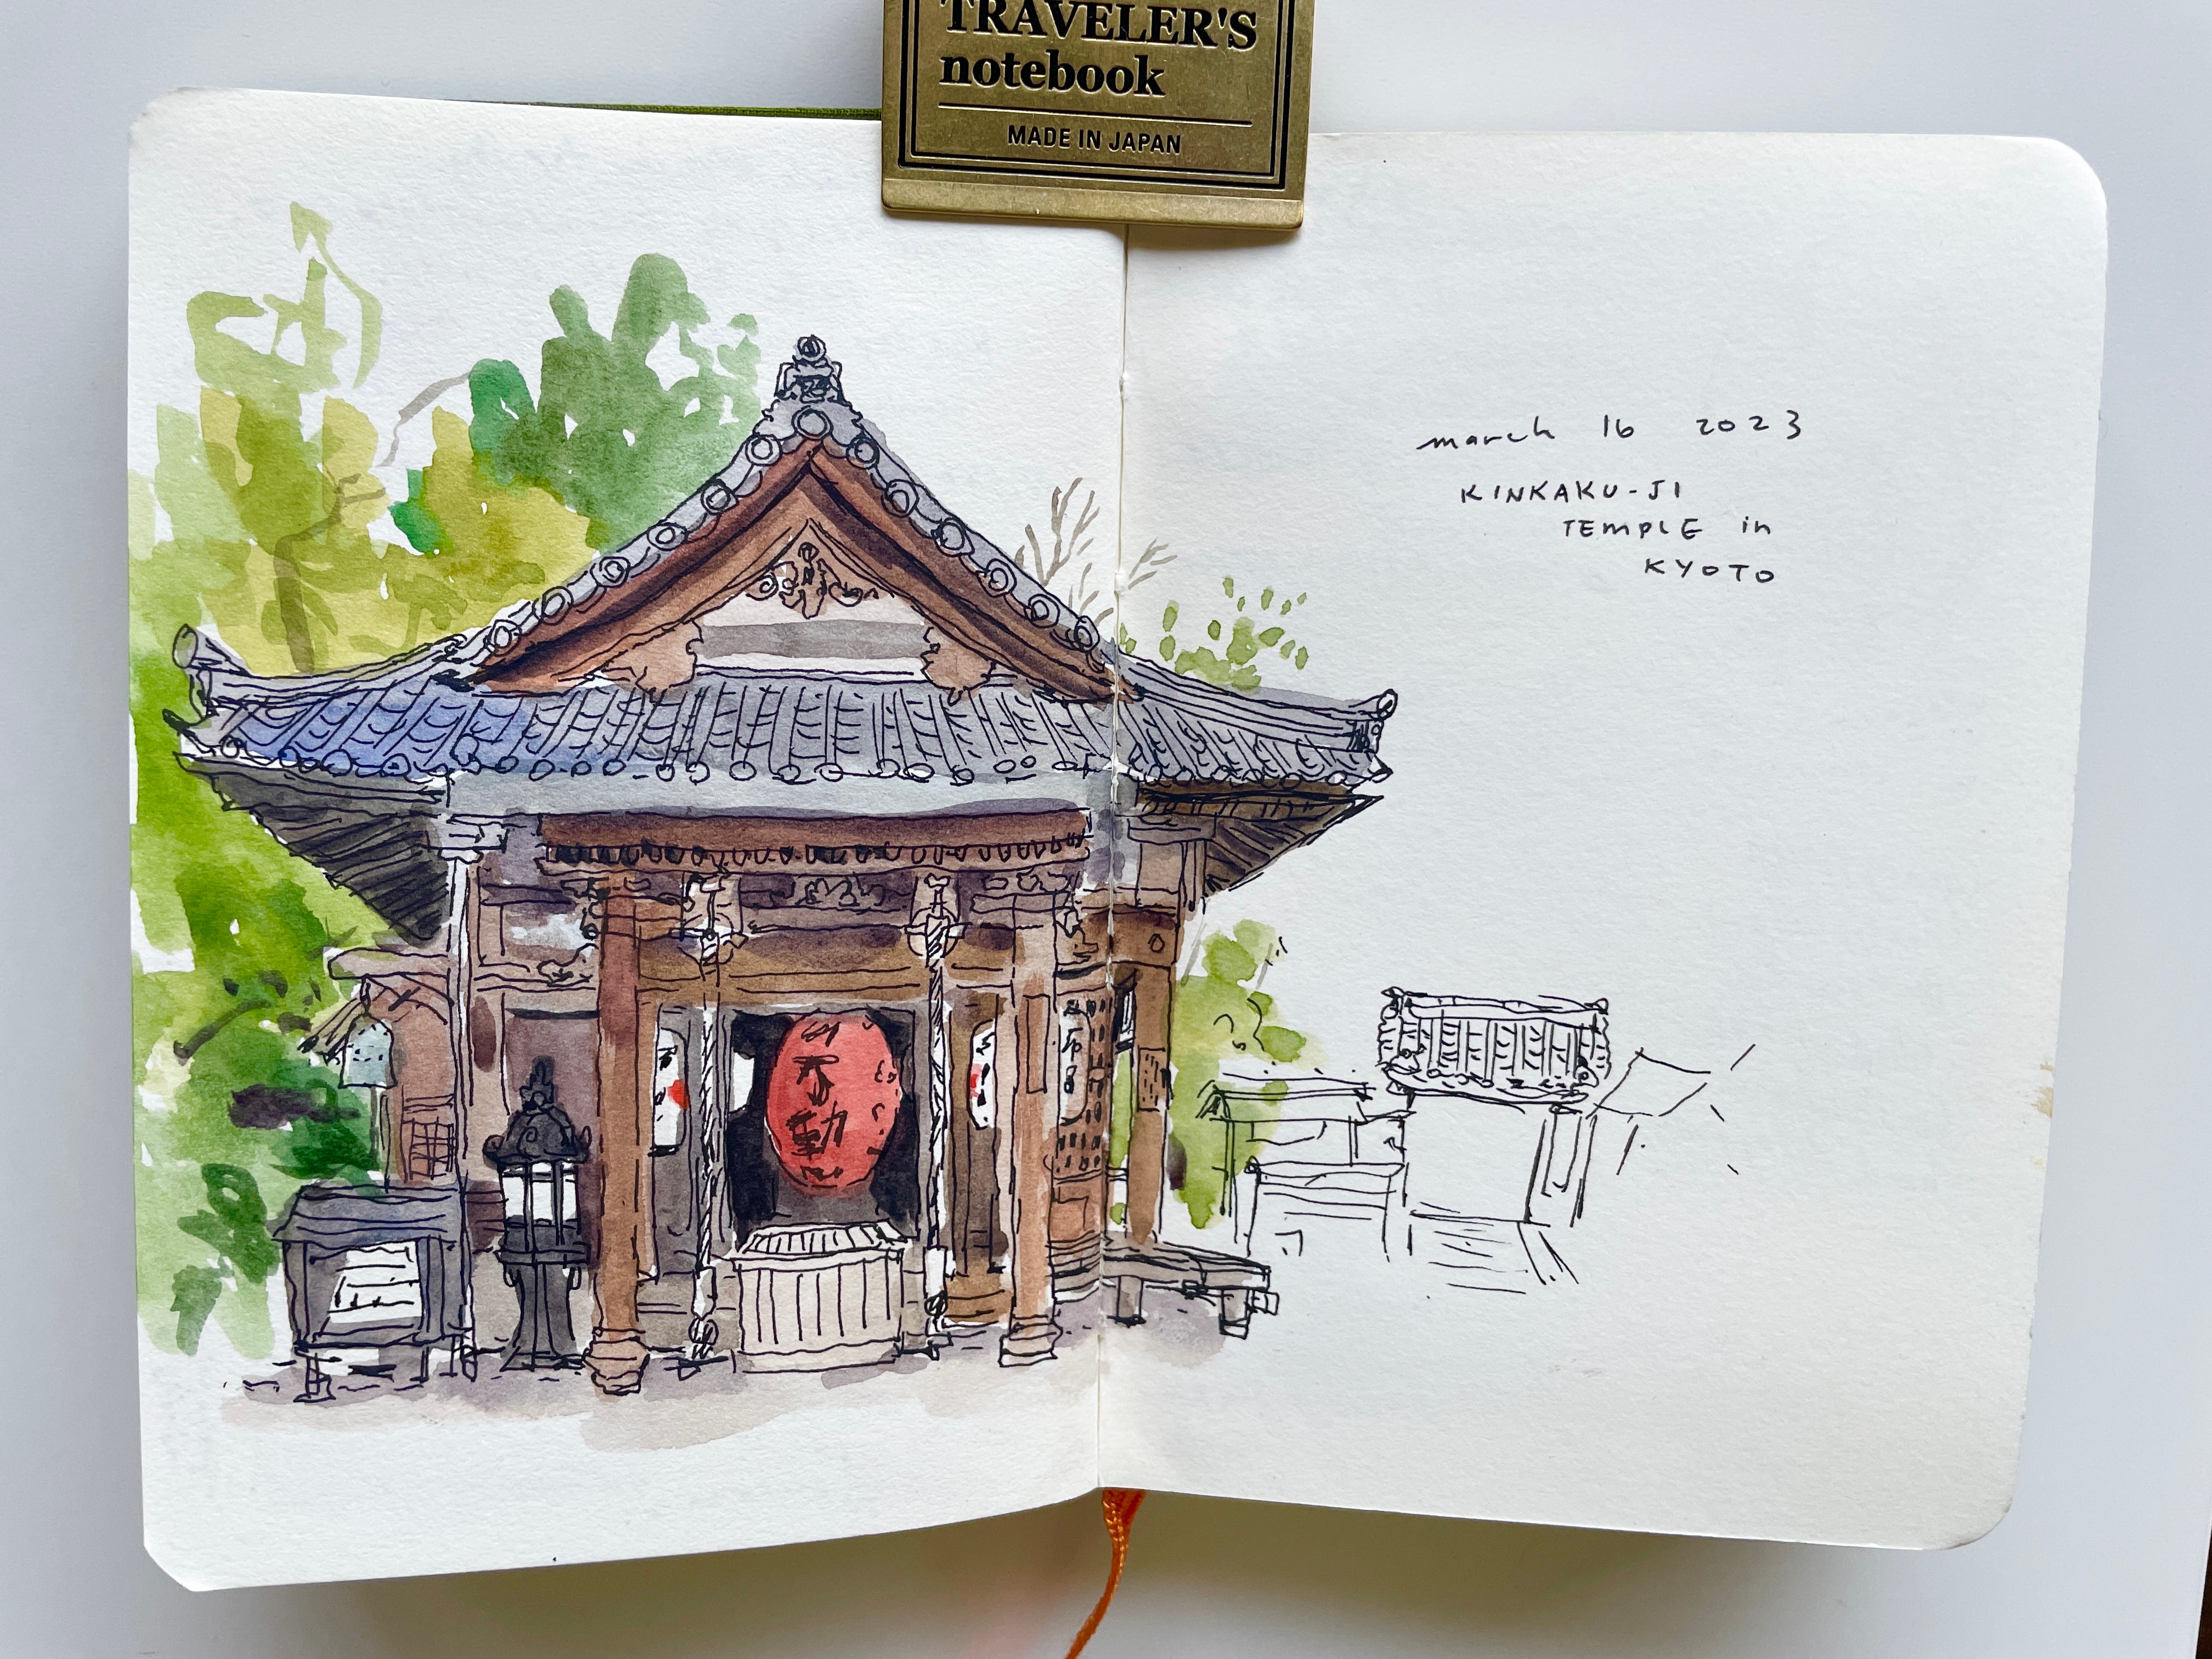 TRAVELER'S
notebook
MADE IN JAPAN
march 16 2023
KINKAKU-JI
TEMPLE in
KYOTO
不動